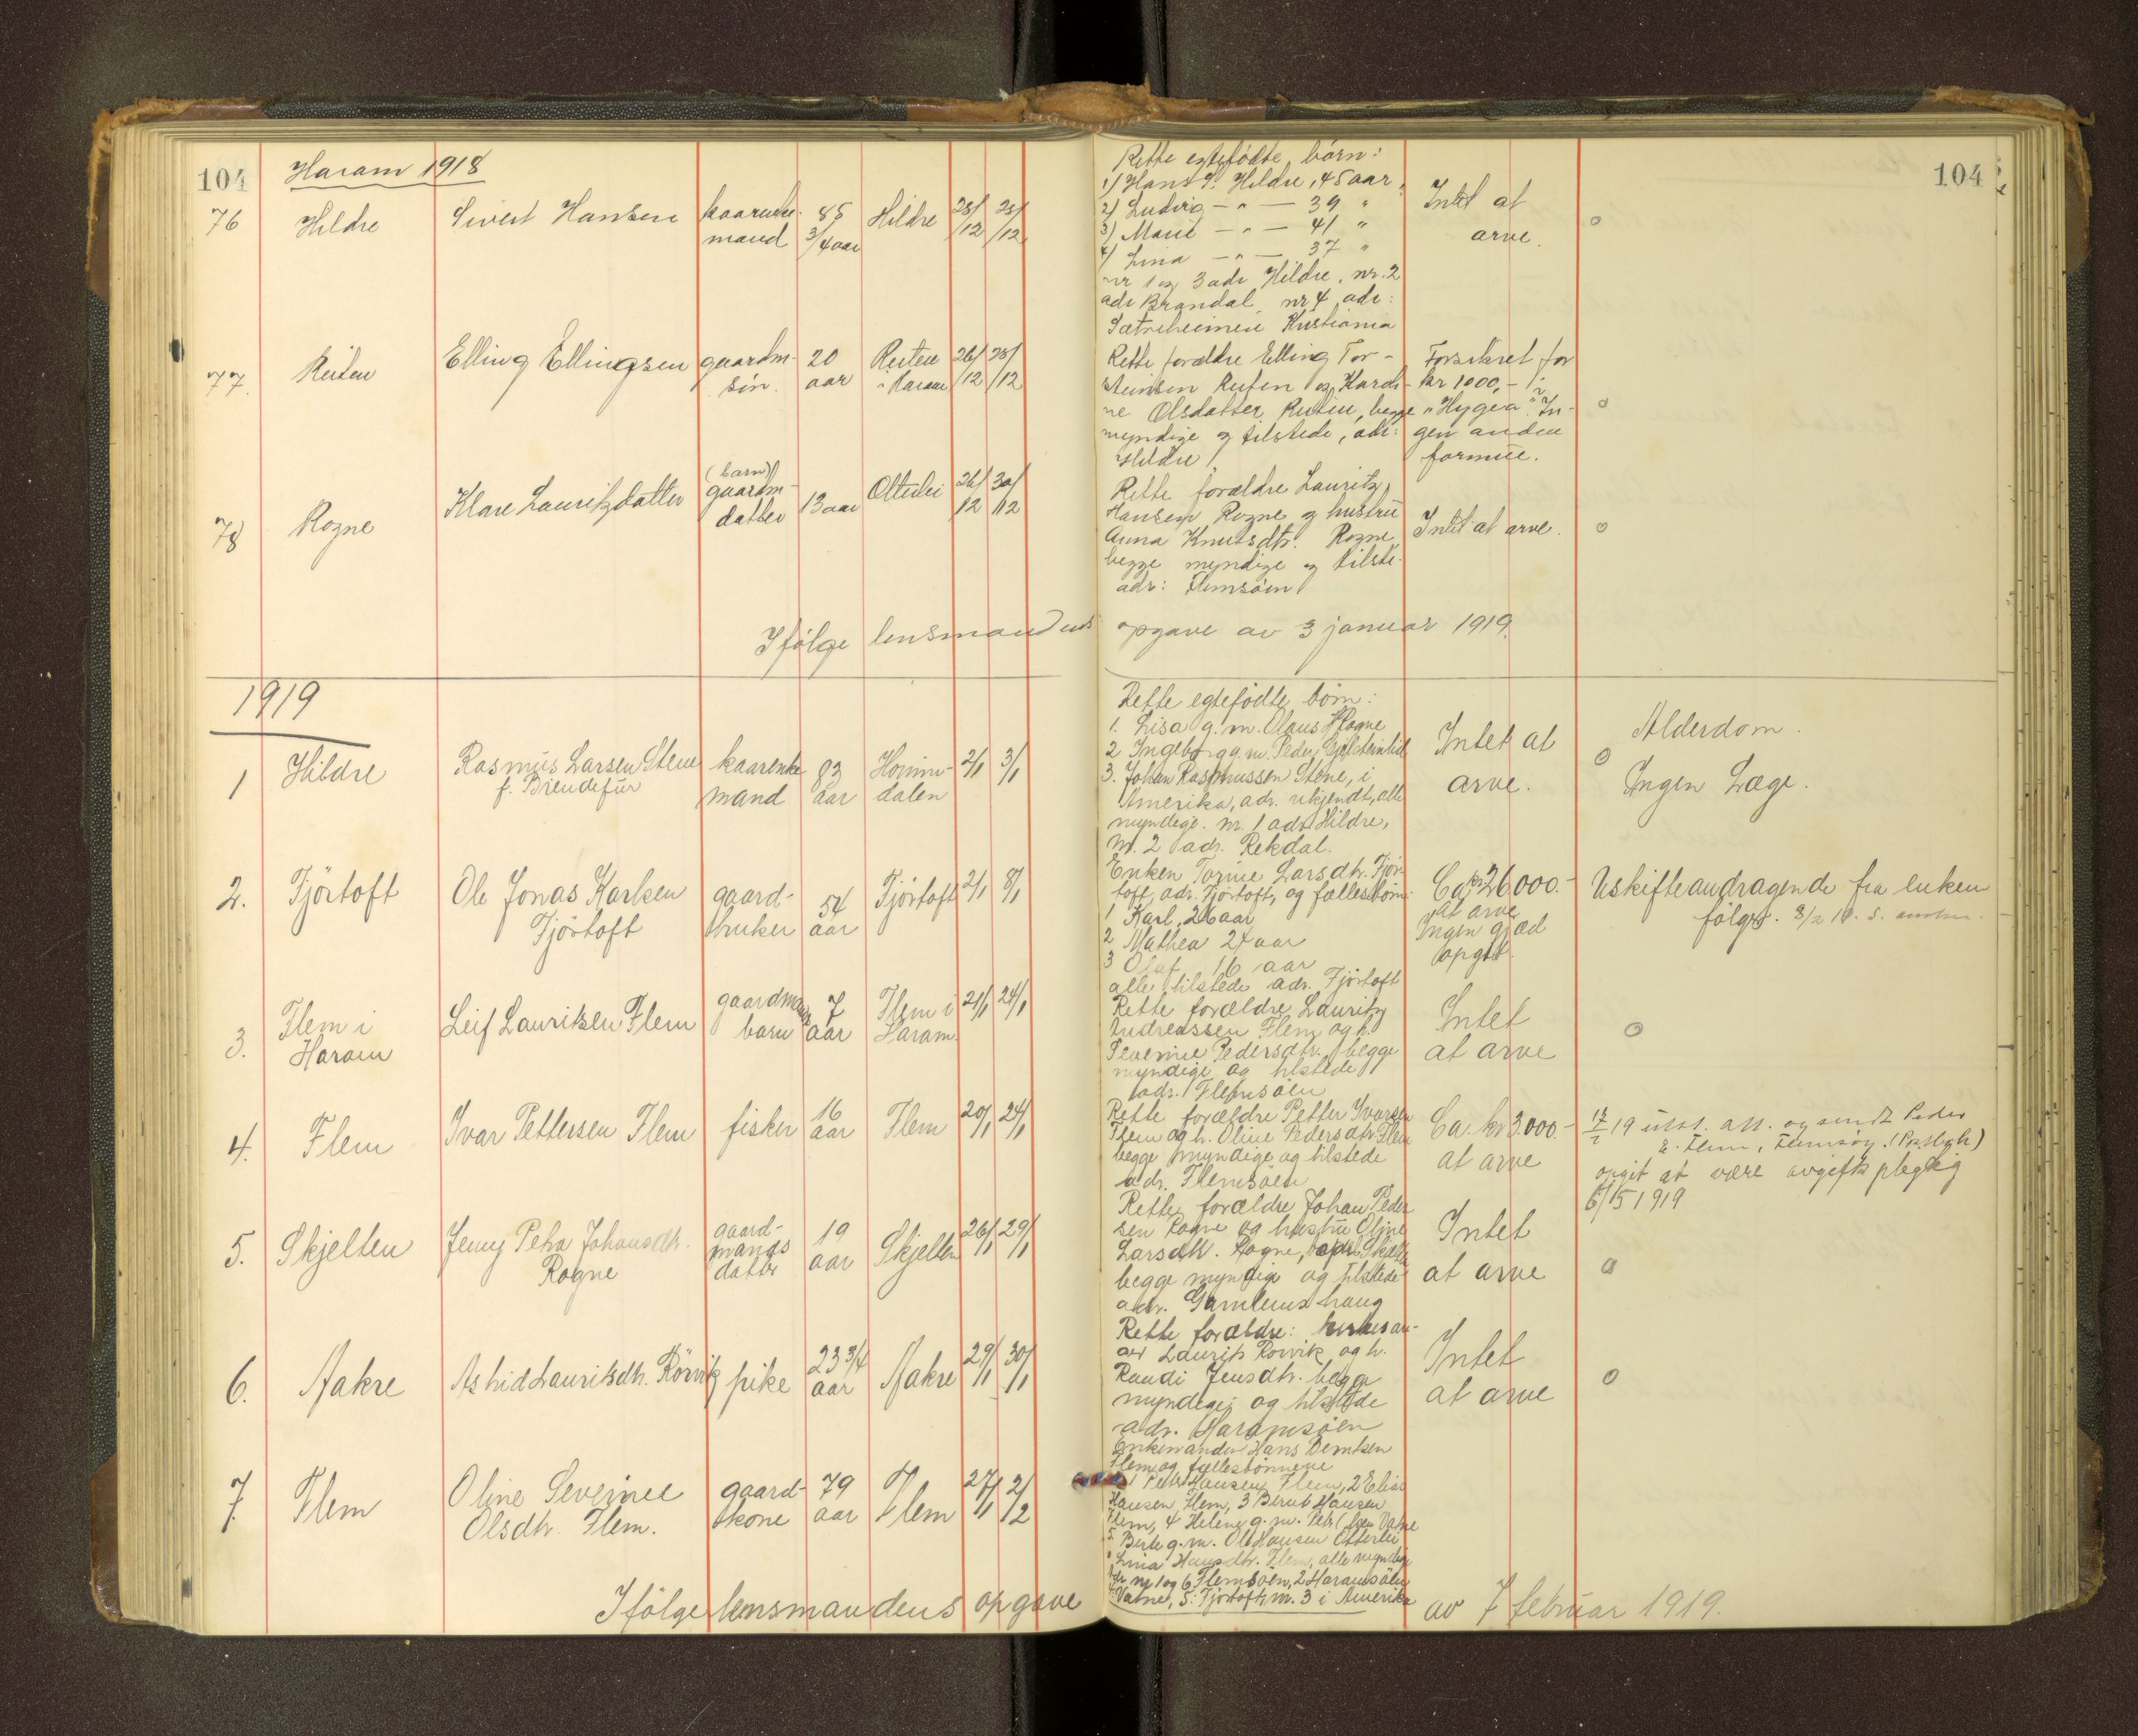 104
Haram 1918
104
76
Hildre
Sivert Hansen
kaarenke-
mand
85
3/4 aar
Hildre
23/12
28/12
Rette egtefödte börn:
1) Hans S. Hildre, 45 aar,
2) Ludvig - " - 39 "
3) Marie - " - 41 "
4) Lina - " - 37 "
nr 1 og 3 adr Hildre, nr. 2
adr Brandal, nr 4 adr:
Sætreheimen Kristiania
Intet at
arve.
o
77
Reiten
Elling Ellingsen
gaardm-
sön.
20
aar
Reiten
i Haram
26/12
28/12
Rette forældre Elling Tor-
steinsen Reiten og Kardi-
ne Olsdatter Reiten, begge
myndige og tilstede, adr:
Hildre
Forsikret for
kr 1000,- i
"Hygea". In-
gen anden
formue.
o
78
Rogne
Klare Lauritzdatter
(barn)
gaardm-
datter
13 aar
Otterlei
26/12
30/12
Rette forældre Lauritz
Hansen Rogne og hustru
Anna Knutsdtr. Rogne
begge myndige og tilste-
adr: Flemsöen
Intet at arve.
o
Ifölge lensmandens opgave av 3 januar 1919.
1919
1
Hildre
Rasmus Larsen Stene
f. Brendefur
kaarenke
mand
83
aar
Homme-
dalen
2/1
3/1
Rette egtefödte börn:
1. Lisa g. m. Olaus Hogne
2 Ingeborg g. m. Peder Gjelsteinlid
3. Johan Rasmussen Stene, i
Amerika, adr. ukjendt, alle
myndige. nr. 1 adr. Hildre,
nr. 2 adr. Rekdal.
Intet at
arve.
o
Alderdom.
Ingen Læge.
2.
Fjörtoft
Ole Jonas Karlsen
Fjörtoft
gaard-
bruker
54
aar
Fjörtoft
2/1
8/1
Enken Torine Larsdtr. Fjör-
toft, adr. Fjörtoft, og fællesbörn:
1 Karl, 26 aar
2 Mathea 24 aar
3 Olaf 16 aar
alle tilstede adr. Fjörtoft
Ca kr 26000.-
at arve
Ingen gjæld
opgit.
Uskifteandragende fra enken
følger. 8/2 19. s.
3.
Flem i
Haram
Leif Lauritsen Flem
gaardmands
barn
7
aar
Flem i
Haram.
21/1
24/1
Rette forældre Lauritz
Andreassen Flem og h.
Severine Pedersdtr. begge
myndige og tilstede
adr. Flemsöen
Intet
at arve
o
4.
Flem
Ivar Pettersen Flem
fisker
16
aar
Flem
20/1
24/1
Rette forældre Petter Ivarsen
Flem og h. Oline Pedersdtr. Flem
begge myndige og tilstede
adr. Flemsöen
Ca. kr 3.000.-
at arve
17/2 19 utst. att. og sendt Peder
E. Flem, Flemsöy.
opgit at være avgiftspligtig
6/5 1919
5.
Skjelten
Jenny Petra Johansdtr.
Rogne
gaard-
mands
datter
19
aar
Skjelten
26/1
29/1
Rette forældre Johan Peder
sen Rogne og hustru Oline
Larsdtr. Rogne, adr. Skjelten
begge myndige og tilstede
adr. Gamlemshaug
Intet
at arve
o
6.
Aakre
Astrid Lauritsdtr. Rörvik
pike
23 3/4
aar
Aakre
29/1
30/1
Rette forældre: kirkesan-
ger Laurits Rörvik og h.
Randi Jensdtr. begge
myndige og tilstede
adr. Haramsöen
Intet
at arve
o
7.
Flem
Oline Severinee
Olsdtr. Flem.
gaard-
kone
79
aar
Flem
27/1
2/2
Enkemanden Hans Berntsen
Flem og fællesbörnene
1 Petter Hansen Flem, 2 Elias
Hansen Flem, 3 Bernt Hansen
Flem, 4 Helene g. m. Petr. Vatne
5. Berte g. m. Ole Hansen Otterlei
6 Lina Hansdtr. Flem, alle myndige
adr nr 1 og 6 Flemsöen, 2 Haramsöen
4. Vatne, 5. Fjörtoft, nr. 3 i Amerika
Ifölge lensmandens opgave av 7 februar 1919.